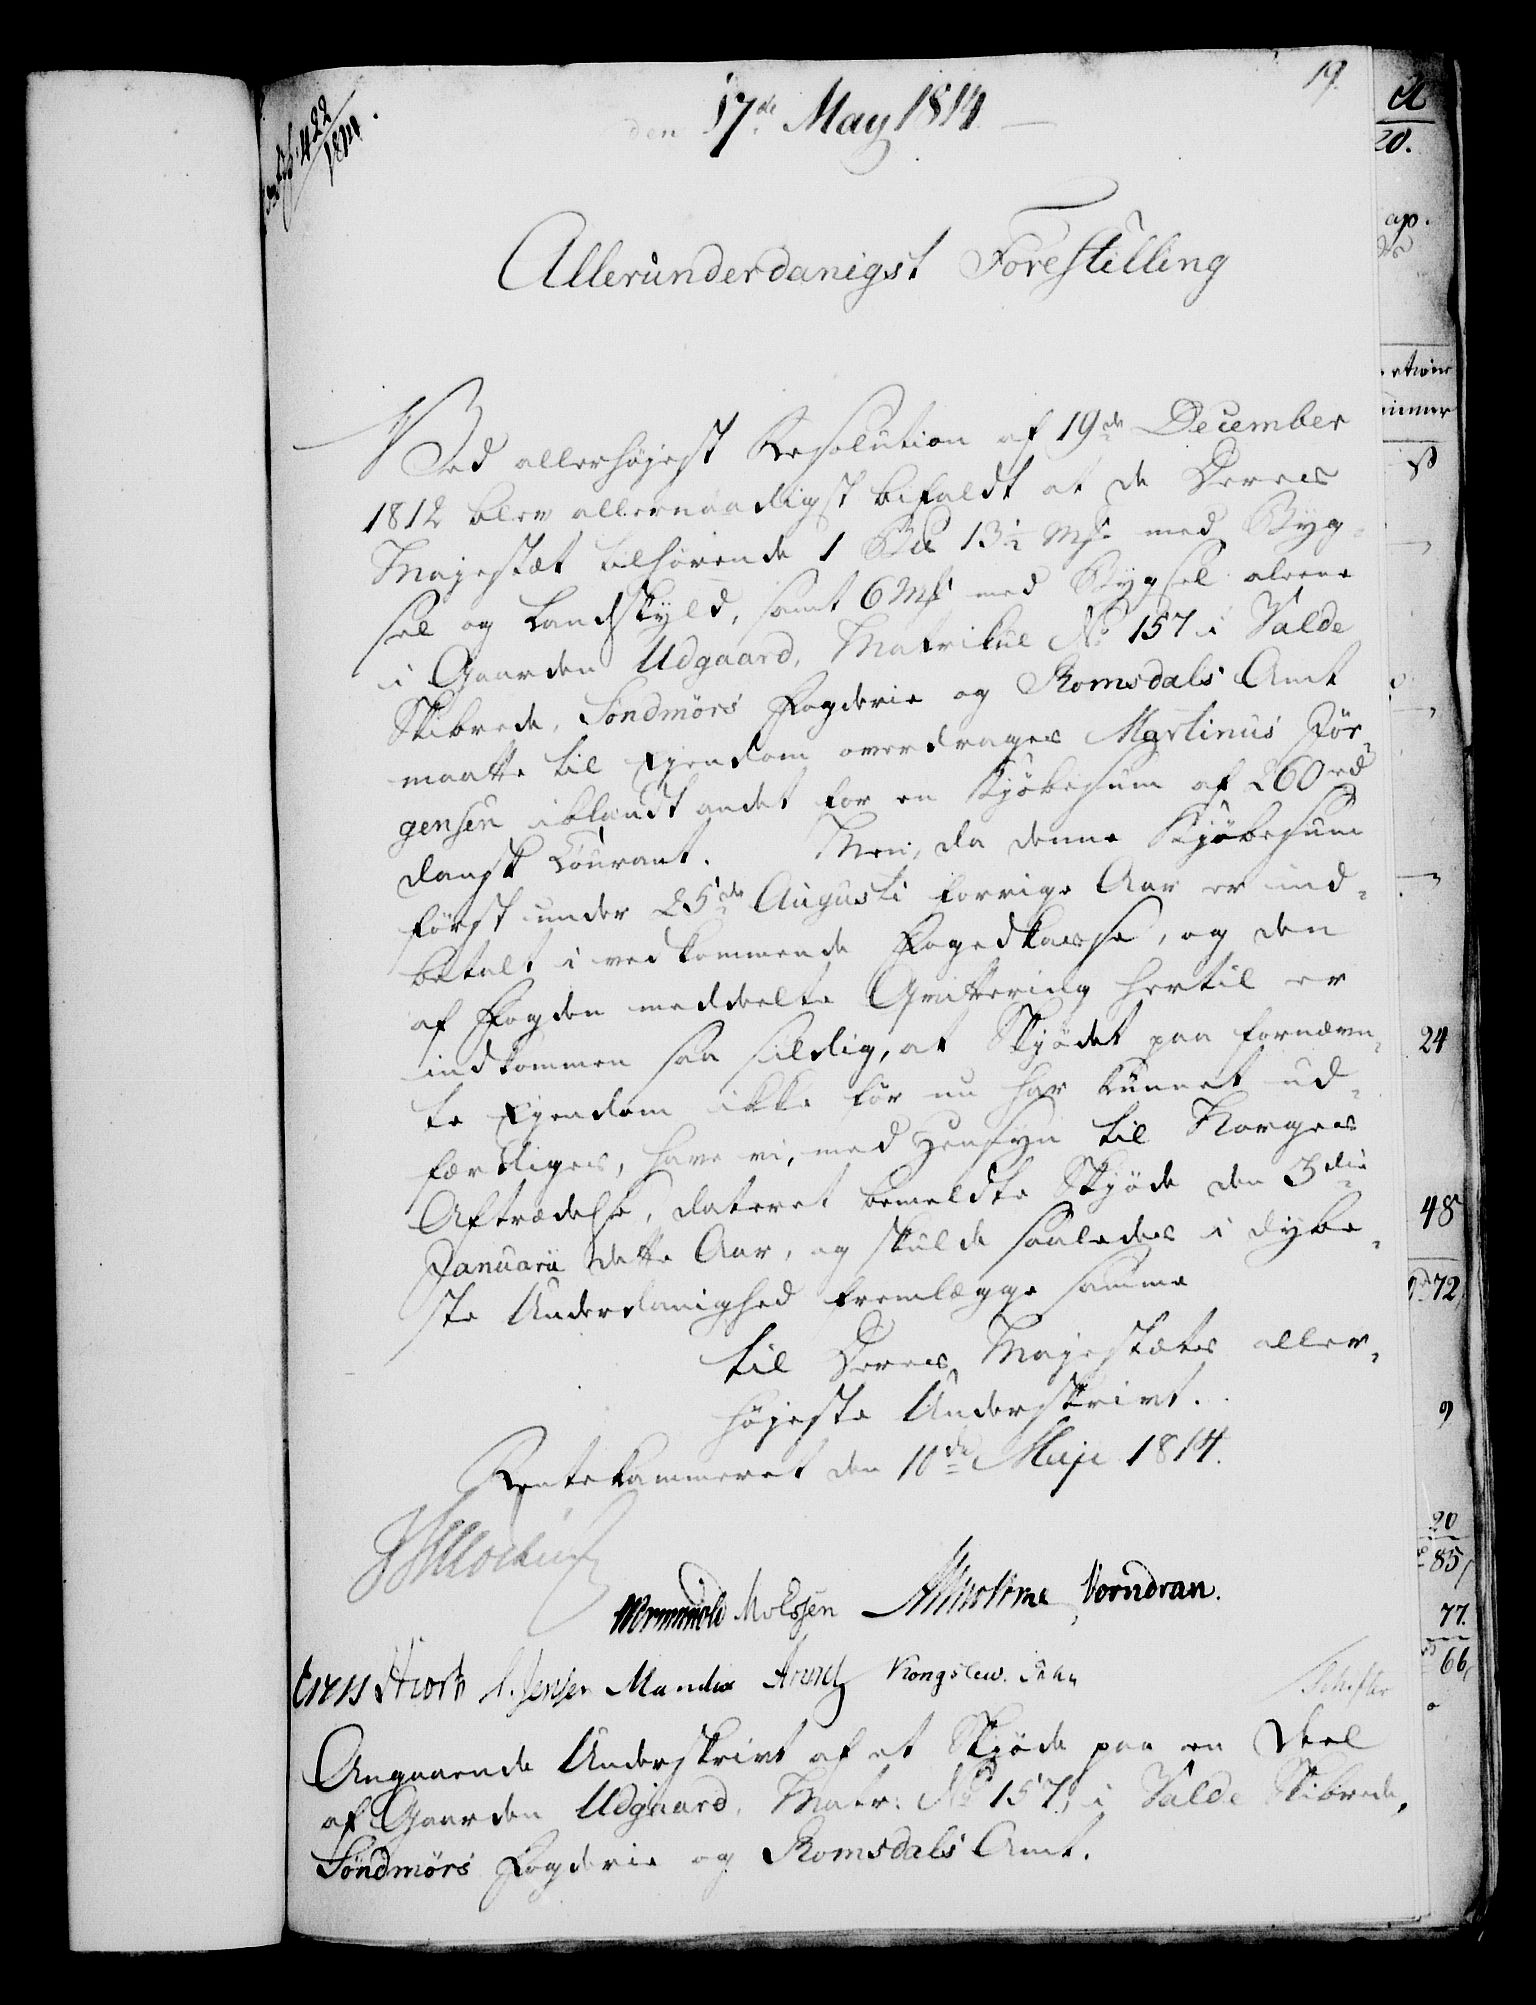 19.
den 17de May 1814
422/1814.
Allerunderdanigst Forestilling
Ved allerhöjest Resolution af 19de December
1812 blev allernaadigst bifaldt at de Deres
Majestæt tilhörende 1 Bd 13½ Mk: med Byg-
sel og Landskyld, samt 6 Mk med Bygsel alene
i Gaarden Udgaard, Matrikul No 157 i Valde
Skibrede, Söndmörs Fogderie og Romsdals Amt
maatte til Ejendom overdrages Martinus Jör-
gensen iblandt andet for en Kjöbesum af 260 rd
dansk Courant. Men, da denne Kjöbesum
först under 25de Augusti forrige Aar er ind-
betalt i vedkommende Fogedkasse, og den
af Fogden meddeelte Qvittering hertil er
indkommen saa sildig, at Skjödet paa fornævn-
te Ejendom ikke för nu har kunnet ud-
færdiges, have vi, med Hensyn til Norges
Aftrædelse, dateret bemeldte Skjöde den 3die
Januarii dette Aar, og skulde saaledes i dybe-
ste Underdanighed fremlægge samme
til Deres Majestæts aller-
höjeste Underskrivt.
Rentekammeret den 10de Maji 1814.
Wormskiold Molssen Vorndran.
Hiort C. Jensen Munder Arentz Kongslew.
Angaaende Underskrivt af et Skjöde paa en Deel
af Gaarden Udgaard, Matr: No 157, i Valde Skibrede,
Söndmörs Fogderie og Romsdals Amt.
20.
24
48
72
9
20
85
77.
66